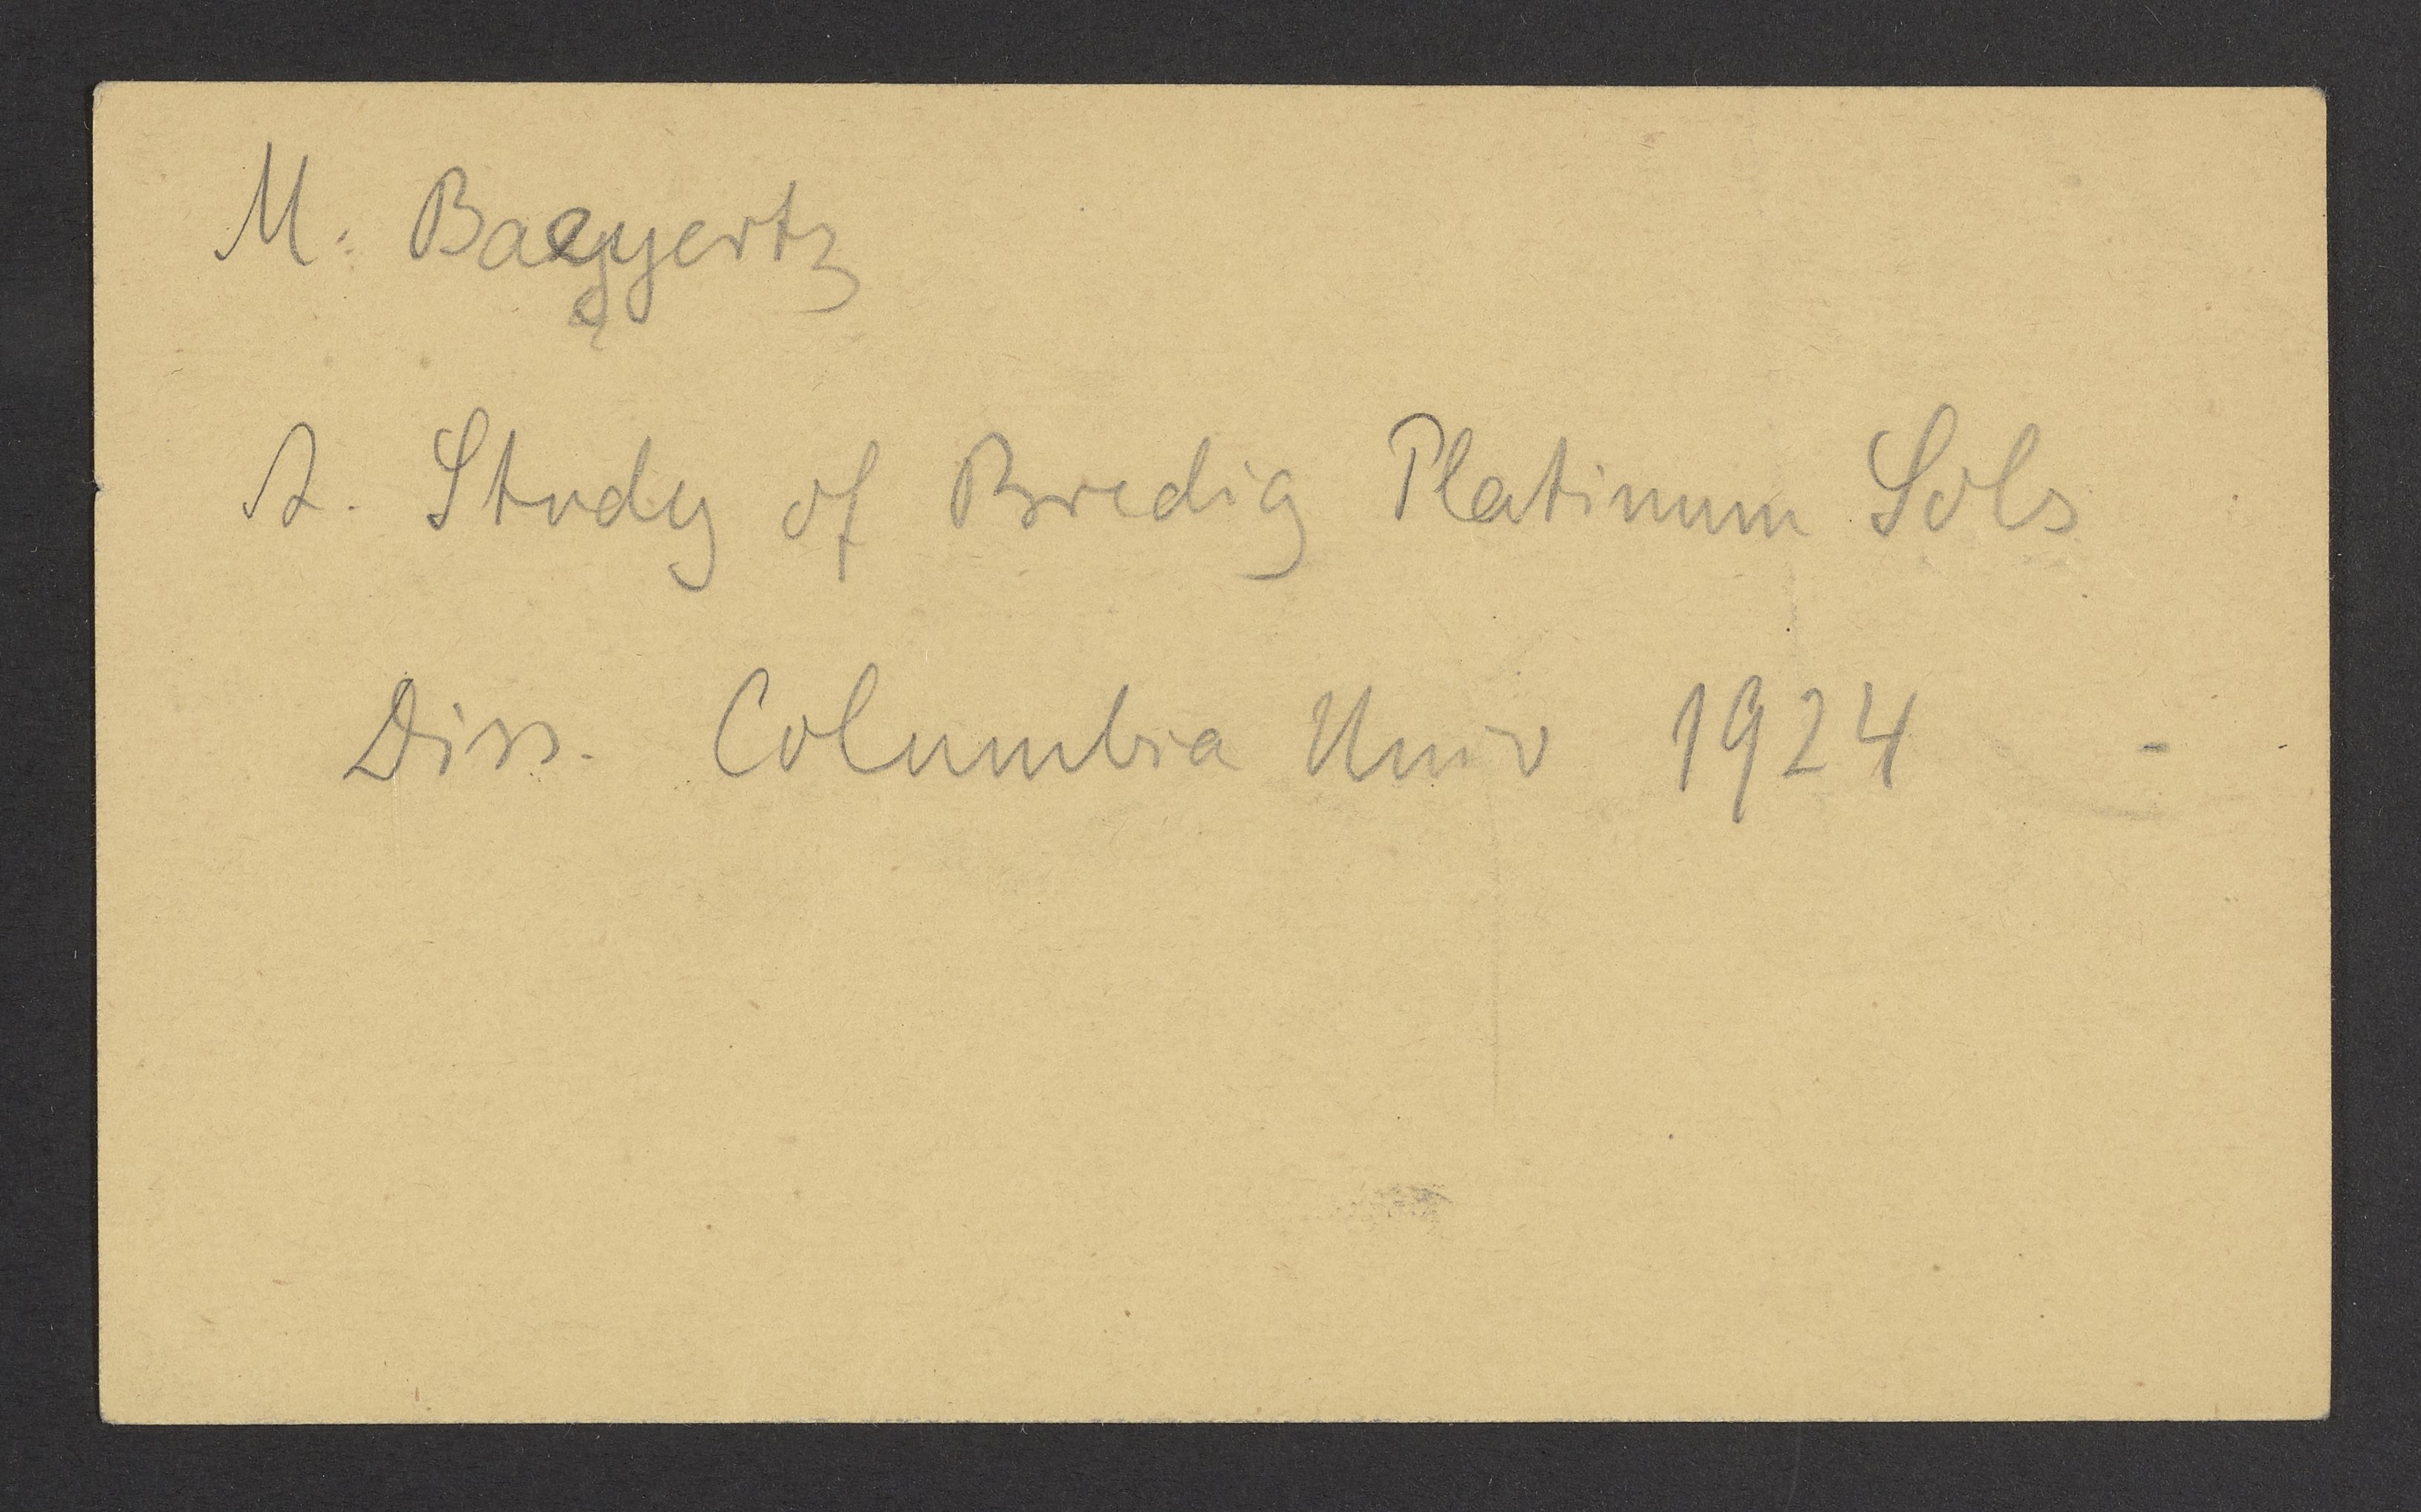 M. Baeyertz
A. Study of Bredig Platinum Sols
Diss. Columbia Univ 1924 -